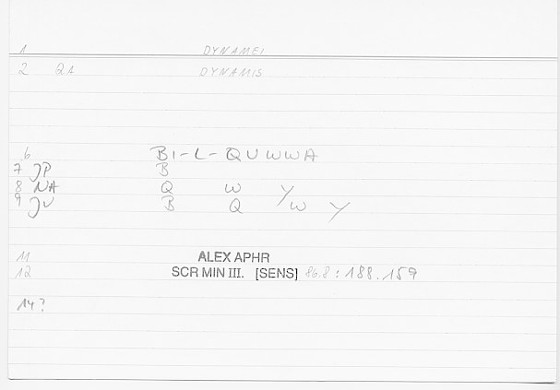 1 DYNAMEI
2 Q1 DYNAMIS
6 BI-L-QUWWA
7 JP B
8 NA Q W Y
9 JU B Q W Y
11 ALEX APHR
12 SCR MIN III. [SENS] 86.8 : 188.159
14?